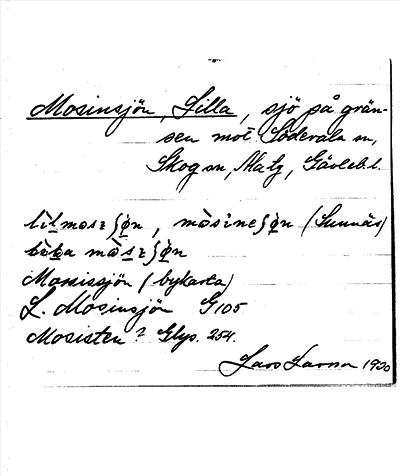 Mosinsjön, Lilla, sjö på grän-
sen mot Söderala sn,
Skog sn, Ala tg, Gävleb. l.
mòsineʃøn (Sunnäs)
Morsissjön (bykarta)
L. Mosinsjön G 105
Mosisten? Glys. 254.
Lars Larsson 1920